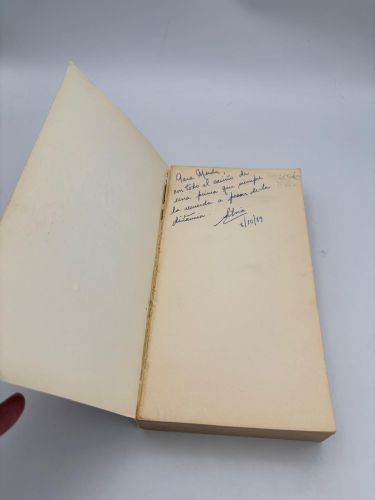 Para
con todo el cariño de
una prima que siempre
la recuerda a pesar de la
distancia Silvia
/10/89